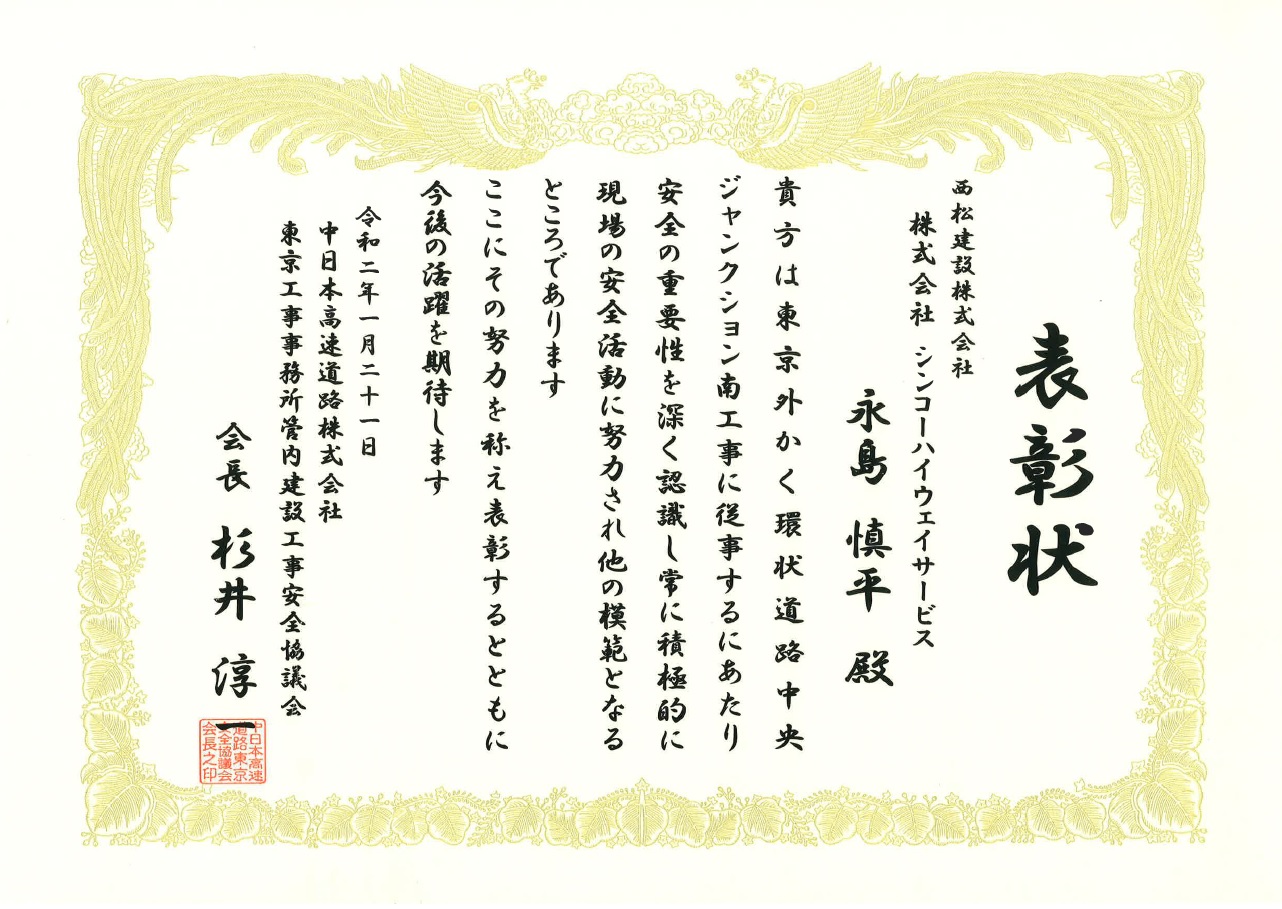 表彰状
西松建設株式会社
株式会社 シンコーハイウェイサービス
永島 慎平 殿
貴方は東京外かく環状道路中央
ジャンクション南工事に従事するにあたり
安全の重要性を深く認識し常に積極的に
現場の安全活動に努力され他の模範となる
ところであります
ここにその努力を称え表彰するとともに
今後の活躍を期待します
令和二年一月二十一日
中日本高速道路株式会社
東京工事事務所管内建設工事安全協議会
会長 杉井 淳一
中日本高速
道路東京
安全協議会
会長之印